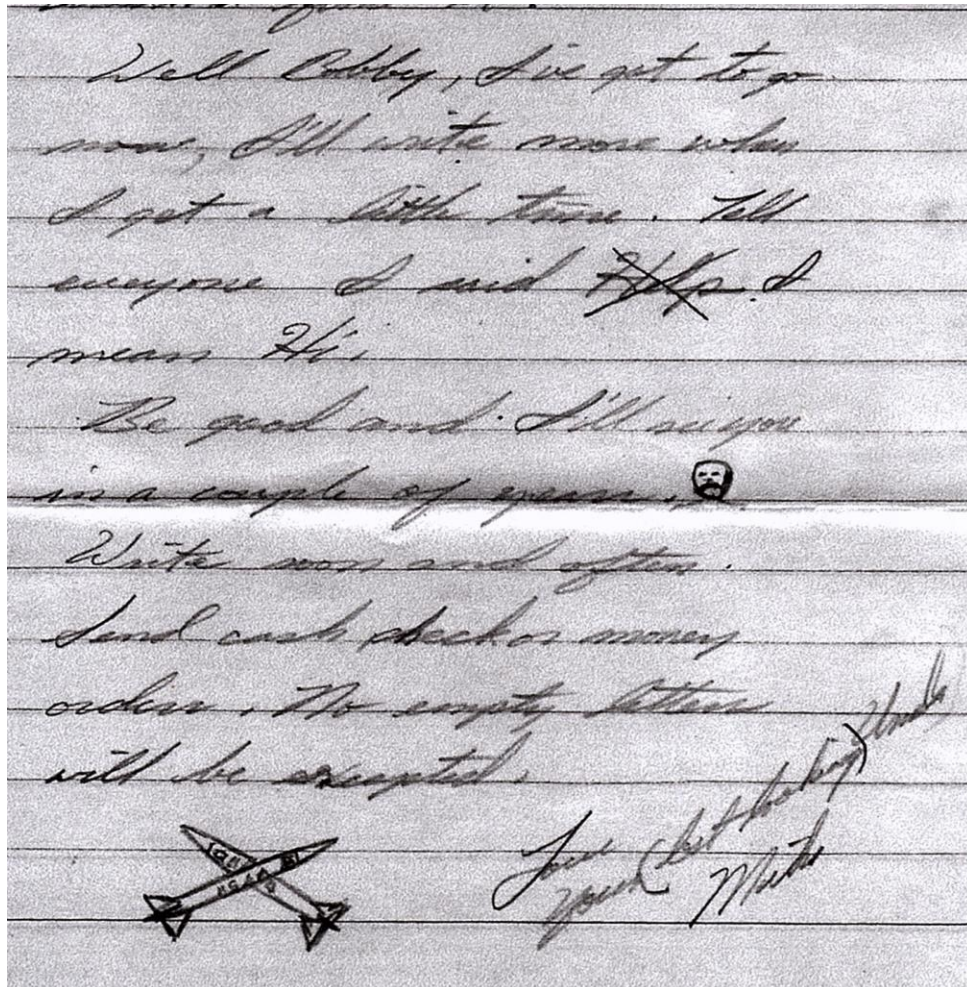 Well Bobby, I've got to go
now, I'll write more when
I get a little time. Tell
everyone I said Help I
mean Hi.
Be good and I'll see you
in a couple of years.
Write soon and often.
Send cash check or money
orders. No empty letters
will be excepted.
Love
Your (best looking) Uncle